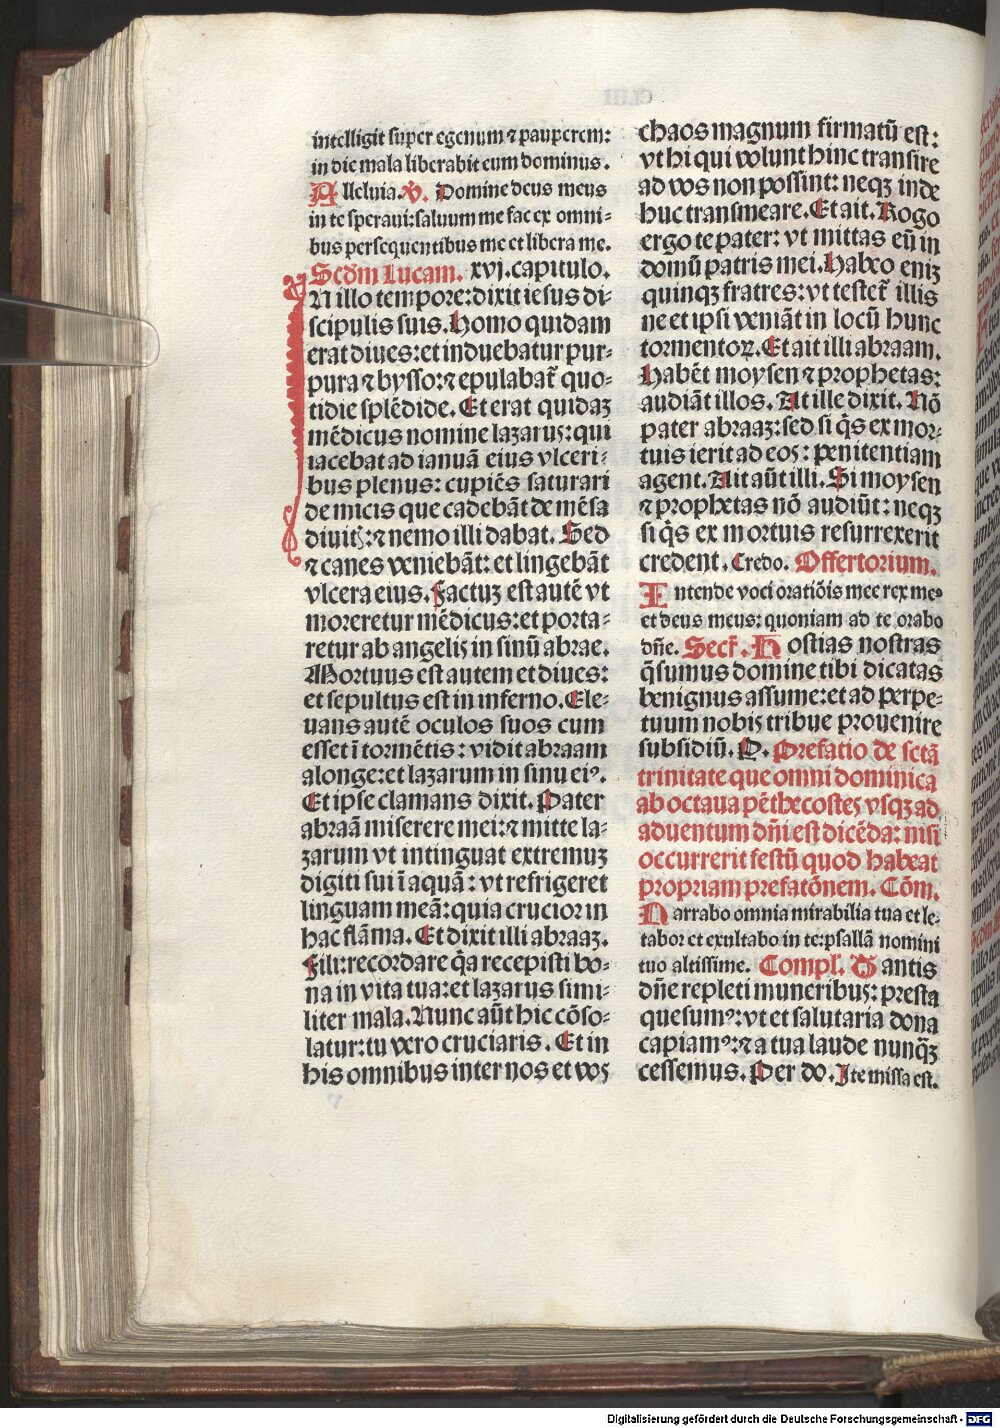 intelligit super egenum ⁊ pauperem:
in die mala liberabit eum dominus.
Alleluia. V̄. Domine deus meus
in te speraui: saluum me fac ex omni-
bus persequentibus me et libera me.
Scd̄m Lucam. xvj. capitulo.
IN illo tempore: dixit iesus di-
scipulis suis. Homo quidam
erat diues: et induebatur pur-
pura ⁊ bysso: ⁊ epulabat᷑ quo-
tidie splēdide. Et erat quidaꝫ
mēdicus nomine lazarus: qui
iacebat ad ianuā eius vlceri-
bus plenus: cupiēs saturari
de micis que cadebāt de mēsa
diuitꝭ: ⁊ nemo illi dabat. Sed
⁊ canes veniebāt: et lingebāt
vlcera eius. Factuꝫ est autē vt
moreretur mēdicus: et porta-
retur ab angelis in sinū abrae.
Mortuus est autem et diues:
et sepultus est in inferno. Ele-
uans autē oculos suos cum
esset ī tormētis: vidit abraam
alonge: et lazarum in sinu eiꝰ.
Et ipse clamans dixit. Pater
abraā miserere mei: ⁊ mitte la-
zarum vt intinguat extremuꝫ
digiti sui ī aquā: vt refrigeret
linguam meā: quia crucior in
hac flāma. Et dixit illi abraaꝫ.
Fili: recordare q̄a recepisti bo-
na in vita tua: et lazarus simi-
liter mala. Nunc aūt hic cōso-
latur: tu vero cruciaris. Et in
his omnibus inter nos et vos
chaos magnum firmatū est:
vt hi qui volunt hinc transire
ad vos non possint: neqꝫ inde
huc transmeare. Et ait. Rogo
ergo te pater: vt mittas eū in
domū patris mei. Habeo eniꝫ
quinqꝫ fratres: vt testet᷑ illis
ne et ipsi veniāt in locū hunc
tormentoꝝ. Et ait illi abraam.
Habēt moysen ⁊ prophetas:
audiāt illos. At ille dixit. Nō
pater abraaꝫ: sed si q̄s ex mor-
tuis ierit ad eos: penitentiam
agent. Ait aūt illi. Si moysen
⁊ prophetas nō audiūt: neqꝫ
si q̄s ex mortuis resurrexerit
credent. Credo. Offertorium.
Intende voci oratiōis mee rex me⁹
et deus meus: quoniam ad te orabo
dn̄e. Secr̄. Hostias nostras
q̄sumus domine tibi dicatas
benignus assume: et ad perpe-
tuum nobis tribue prouenire
subsidiū. P. Prefatio de sctā
trinitate que omni dominica
ab octaua pēthecostes vsqꝫ ad
aduentum dn̄i est dicēda: nisi
occurrerit festū quod habeat
propriam prefatōnem. Cōm.
Narrabo omnia mirabilia tua et le-
tabor et exultabo in te: psallā nomini
tuo altissime. Compl. Tantis
dn̄e repleti muneribus: presta
quesumꝰ: vt et salutaria dona
capiamꝰ: ⁊ a tua laude nunq̄ꝫ
cessemus. Per do. Ite missa est.
Digitalisierung gefördert durch die Deutsche Forschungsgemeinschaft - DFG